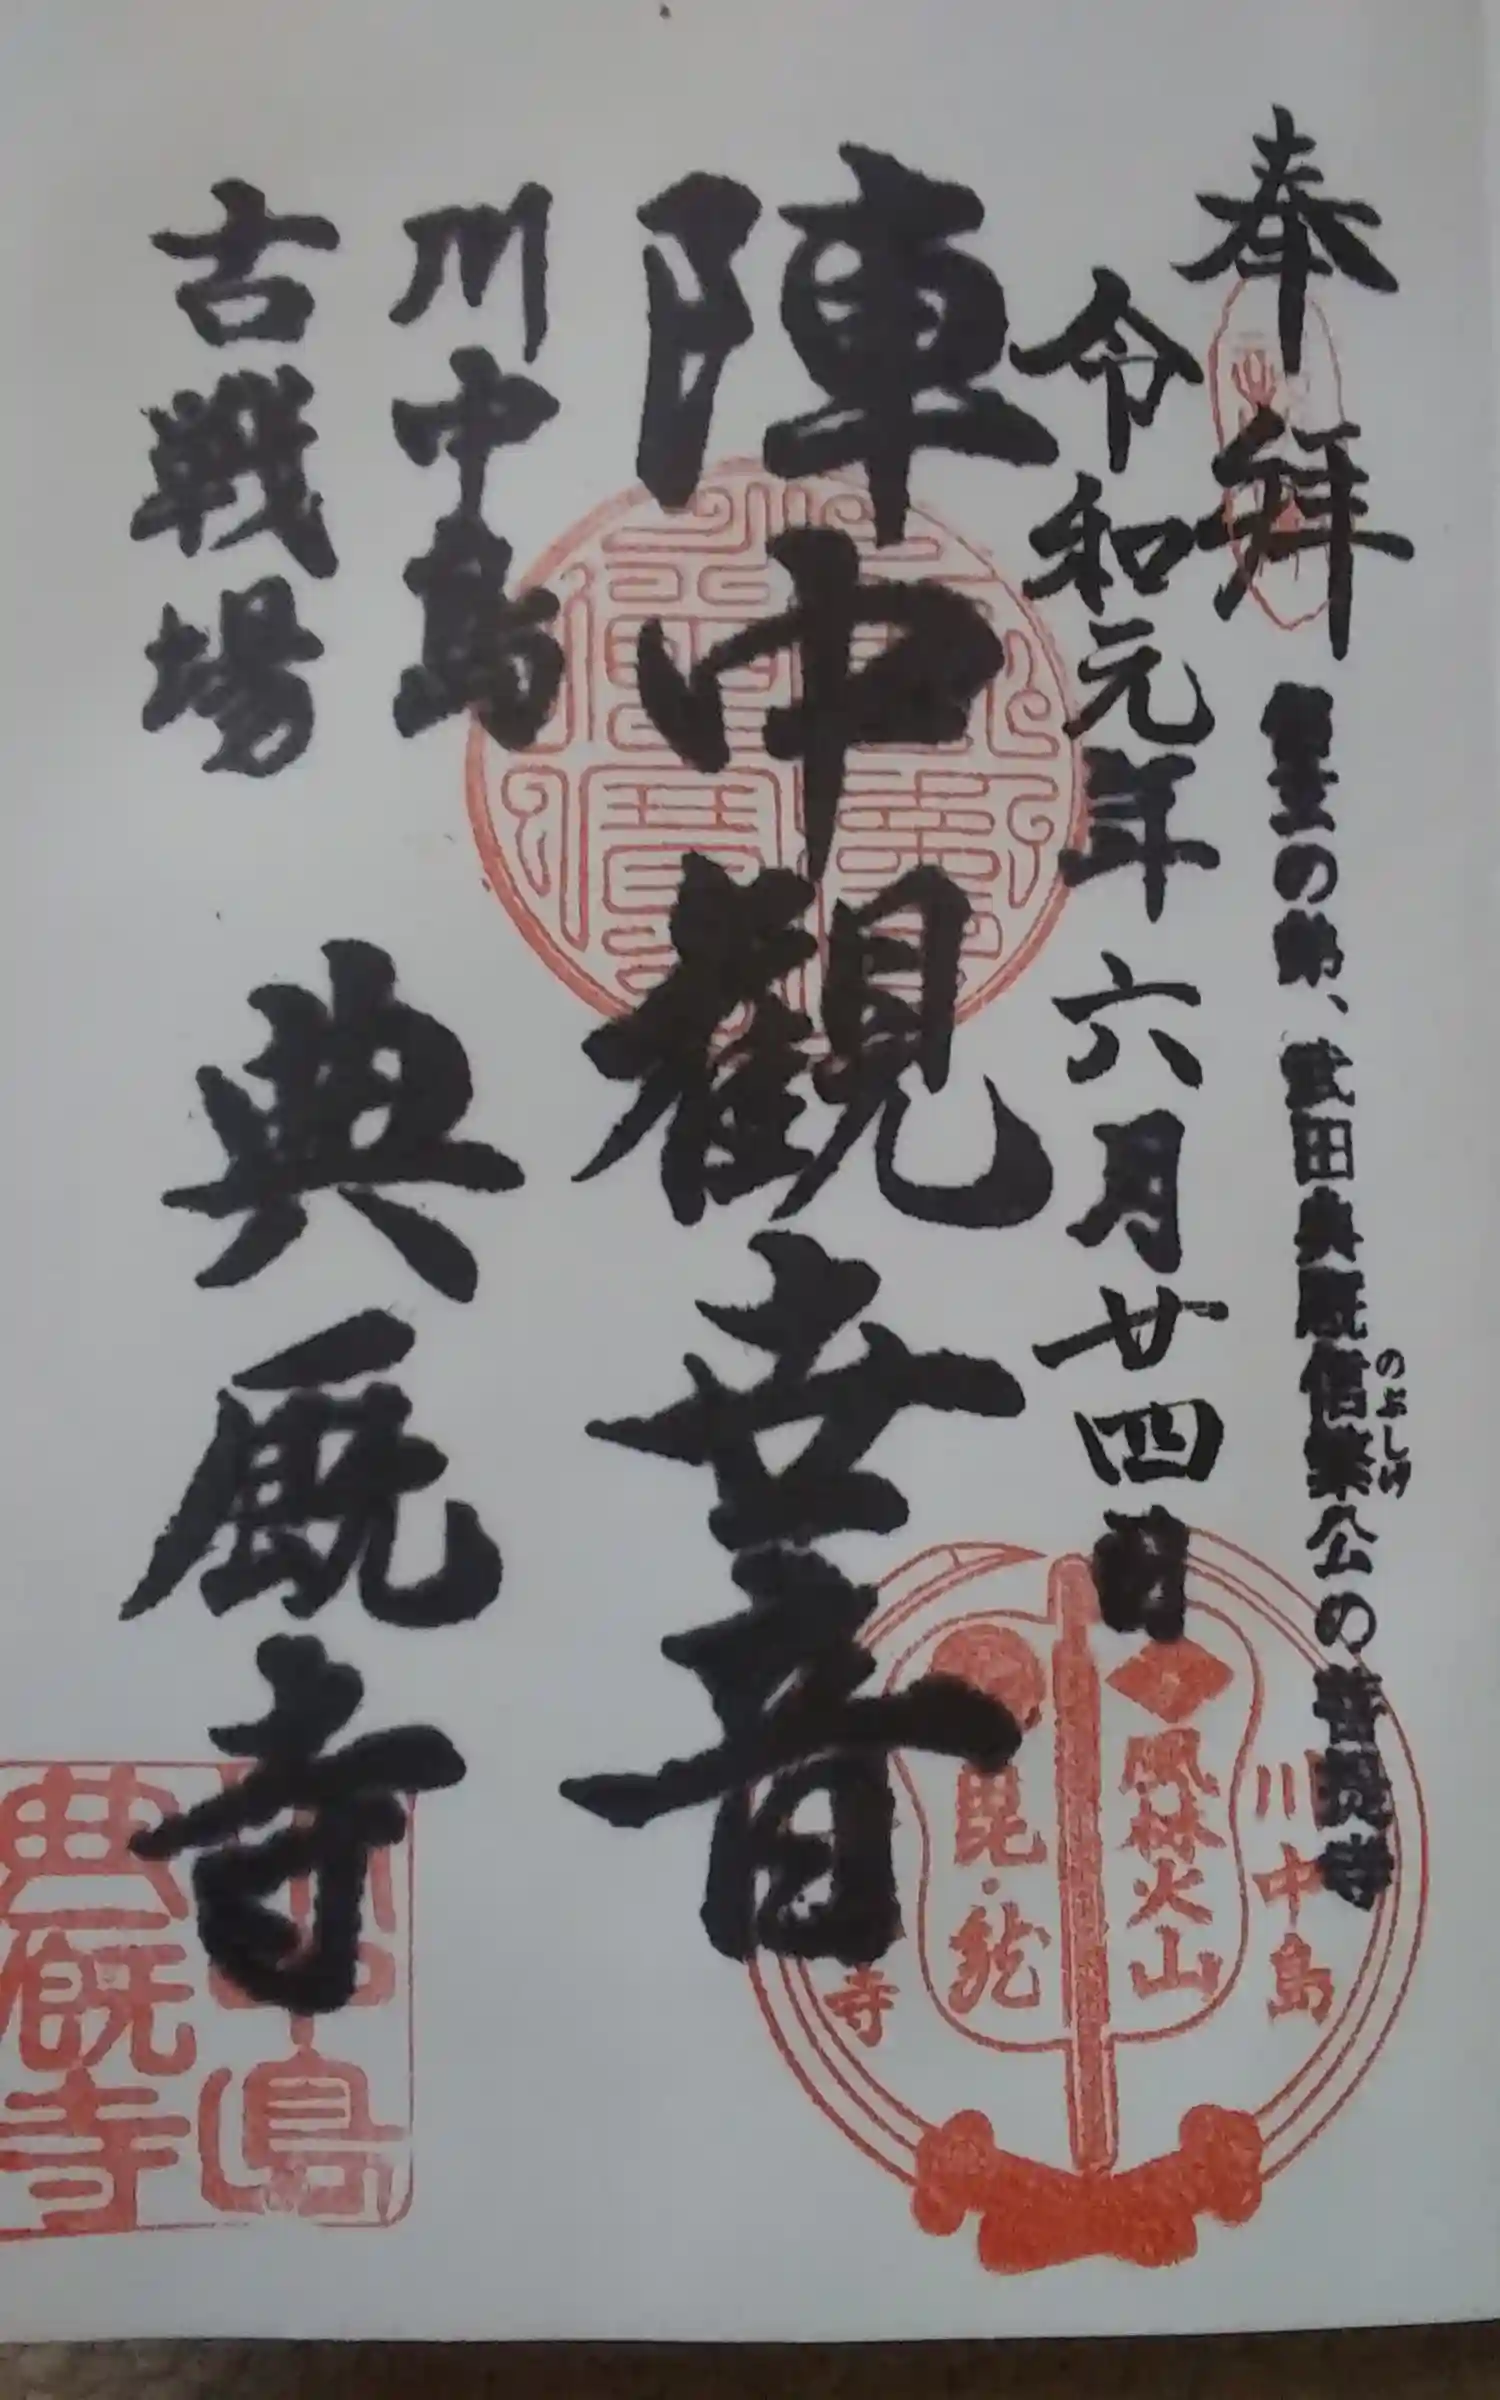 奉拜
信玄の弟、武田典厩信繁公の菩提寺
のぶしげ
令和元年六月廿四日
陣中観世音
川中島
古戦場
典厩寺
川中島
風林火山
毘・龍
寺
島
典厩寺